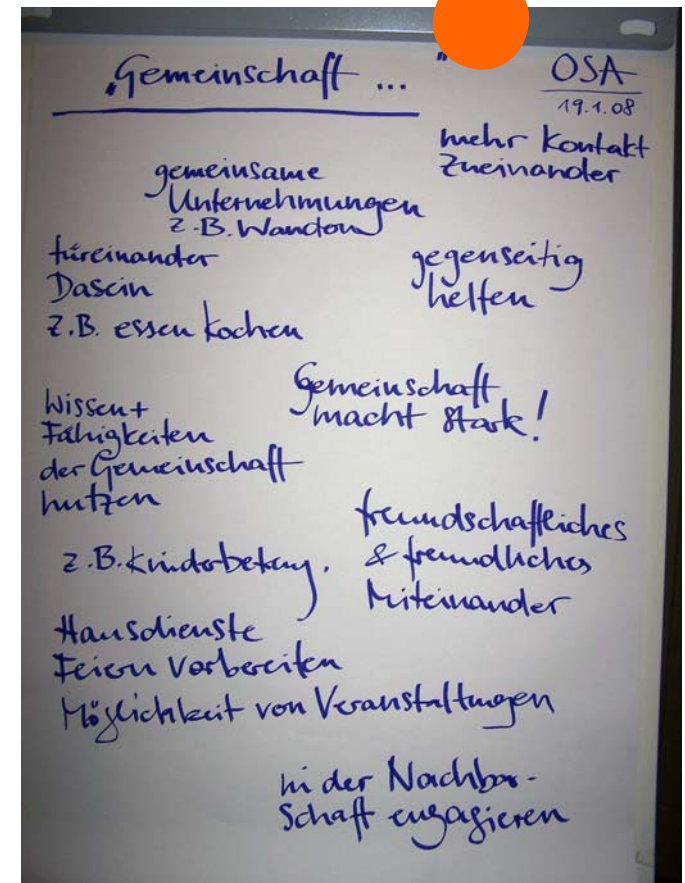 „Gemeinschaft ..."
OSA
19.1.08
mehr Kontakt
Zueinander
gemeinsame
Unternehmungen
z.B. Wandern
füreinander
Dasein
z.B. essen kochen
gegenseitig
helfen
Gemeinschaft
macht stark!
Wissen+
Fähigkeiten
der Gemeinschaft
nutzen
z.B. Kinderbetreug.
freundschaftliches
& freundliches
Miteinander
Hausdienste
Feiern Vorbereiten
Möglichkeit von Veranstaltungen
in der Nachbar-
schaft engagieren